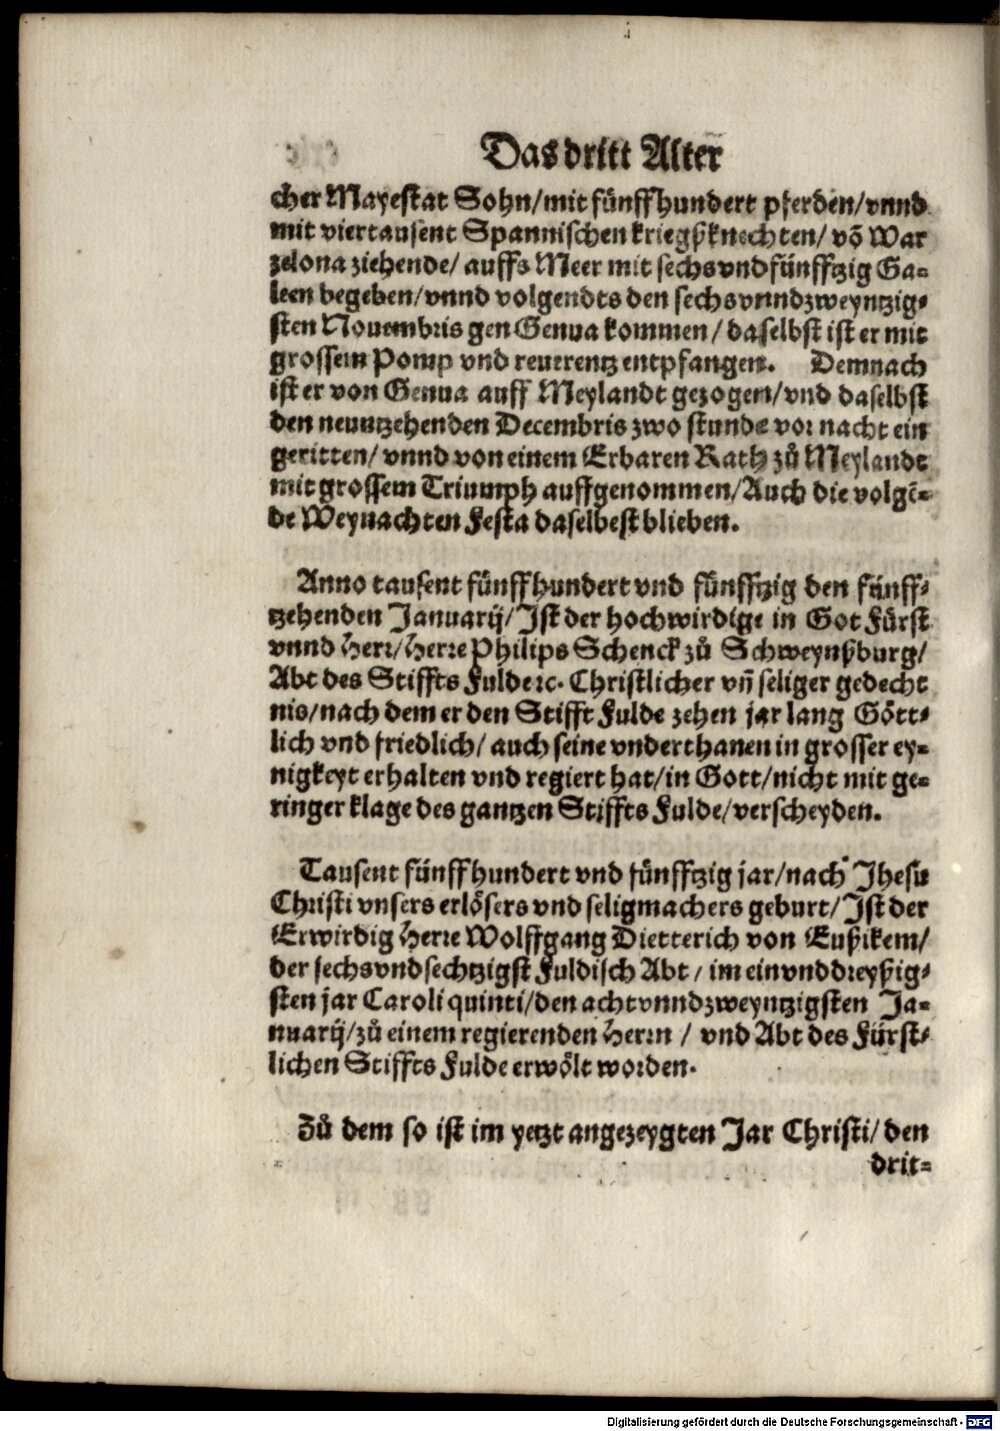 Das dritt Alter
cher Mayestat Sohn/mit fünffhundert pferden/vnnd
mit viertausent Spannischen kriegßknechten/ võ War
zelona ziehende/ auffs Meer mit sechsvndfünfftzig Ga-
leen begeben/vnnd volgendts den sechsvnndzweyntzig-
sten Nouembris gen Genua kommen/ daselbst ist er mit
grossem Pomp vnd reuerentz entpfangen. Demnach
ist er von Genua auff Meylandt gezogen/vnd daselbst
den neuntzehenden Decembris zwo stunde vor nacht ein
geritten/ vnnd von einem Erbaren Rath zů Meylandt
mit grossem Triumph auffgenommen/Auch die volgẽ-
de Weynachten Festa daselbest blieben.
Anno tausent fünffhundert vnd fünfftzig den fünff-
tzehenden Januarij/Ist der hochwirdige in Got Fürst
vnnd Herr/Herre Philips Schenck zů Schweynßburg/
Abt des Stiffts Fulde ꝛc. Christlicher vñ seliger gedecht
nis/nach dem er den Stifft Fulde zehen jar lang Gött-
lich vnd friedlich/ auch seine vnderthanen in grosser ey-
nigkeyt erhalten vnd regiert hat/in Gott/nicht mit ge-
ringer klage des gantzen Stiffts Fulde/verscheyden.
Tausent fünffhundert vnd fünfftzig jar/nach Jhesu
Christi vnsers erlösers vnd seligmachers geburt/Ist der
Erwirdig Herre Wolffgang Dietterich von Eußikem/
der sechsvndsechtzigst Fuldisch Abt/ im einvnddreyßig-
sten jar Caroli quinti/den achtvnndzweyntzigsten Ja-
nuarij/zů einem regierenden Herrn / vnd Abt des Fürst-
lichen Stiffts Fulde erwölt worden.
Zů dem so ist im yetzt angezeygten Jar Christi/den
drit-
Digitalisierung gefördert durch die Deutsche Forschungsgemeinschaft - DFG